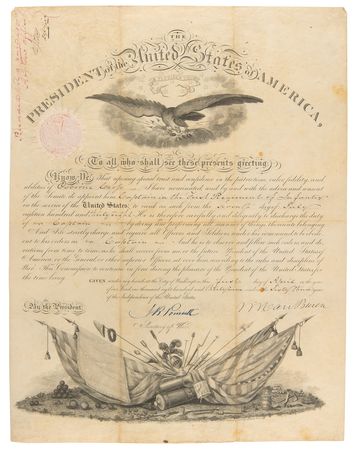 THE
PRESIDENT of the United States of AMERICA,
To all who shall see these presents greeting:
Know Ye, That reposing special trust and confidence in the patriotism, valor, fidelity and
abilities of I have nominated, and by and with the advice and consent
of the Senate do appoint him Captain in the First Regiment of Infantry
in the service of the United States: to rank as such from the day of July
eighteen hundred and thirty eight. He is therefore carefully and diligently to discharge the duty
of Captain by doing and performing all manner of things thereunto belonging.
And I do strictly charge and require all Officers and Soldiers under his command to be obedi-
ent to his orders as Captain And he is to observe and follow such orders and di-
rections from time to time as he shall receive from me or the future President of the United States of
America, or the General or other superior Officers set over him according to the rules and discipline of
War. This Commission to continue in force during the pleasure of the President of the United States for
the time being.
GIVEN under my hand at the City of Washington this day of in the year
of our Lord one thousand eight hundred and and in the Sixty Third year
of the Independence of the United States.
By the President
M Van Buren
J R Poinsett
Secretary of War